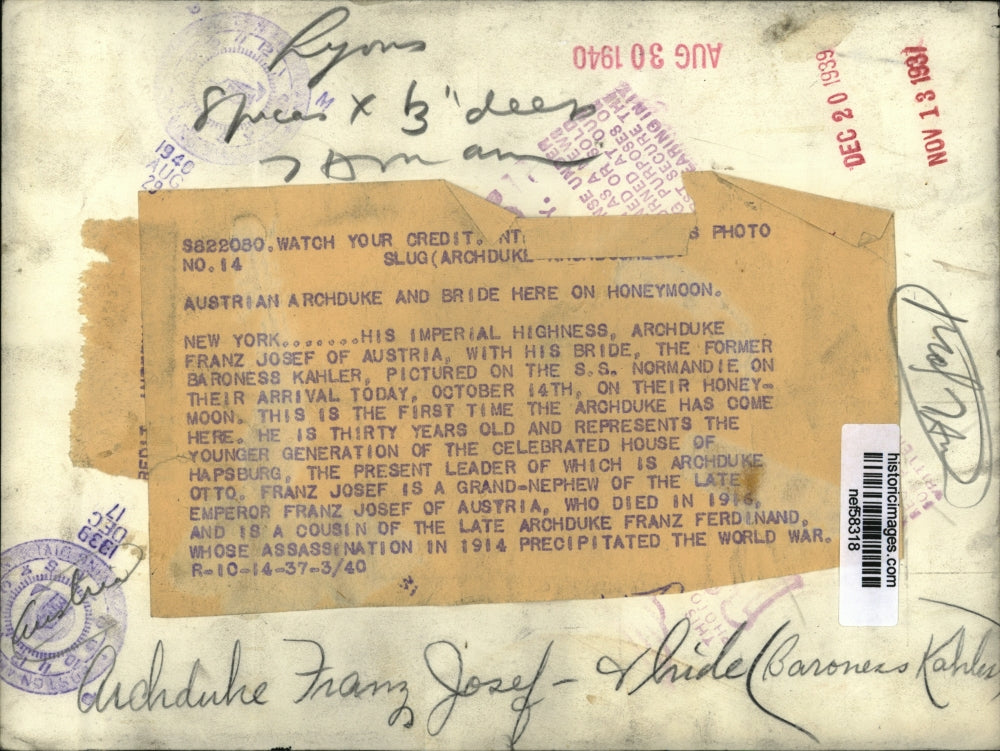 Lyons
AUG 30 1940
DEC 20 1939
NOV 13 1937
x 3" deep
1940
AUG
29
S822080. WATCH YOUR CREDIT. S PHOTO
NO. 14 SLUG (ARCHDUKE
AUSTRIAN ARCHDUKE AND BRIDE HERE ON HONEYMOON.
NEW YORK.......HIS IMPERIAL HIGHNESS, ARCHDUKE
FRANZ JOSEF OF AUSTRIA, WITH HIS BRIDE, THE FORMER
BARONESS KAHLER, PICTURED ON THE S.S. NORMANDIE ON
THEIR ARRIVAL TODAY, OCTOBER 14TH, ON THEIR HONEY-
MOON. THIS IS THE FIRST TIME THE ARCHDUKE HAS COME
HERE. HE IS THIRTY YEARS OLD AND REPRESENTS THE
YOUNGER GENERATION OF THE CELEBRATED HOUSE OF
HAPSBURG, THE PRESENT LEADER OF WHICH IS ARCHDUKE
OTTO. FRANZ JOSEF IS A GRAND-NEPHEW OF THE LATE
EMPEROR FRANZ JOSEF OF AUSTRIA, WHO DIED IN 1916,
AND IS A COUSIN OF THE LATE ARCHDUKE FRANZ FERDINAND,
WHOSE ASSASSINATION IN 1914 PRECIPITATED THE WORLD WAR.
R-10-14-37-3/40
historicimages.com
nef58318
1939
DEC
17
Austria
Archduke Franz Josef - & bride (Baroness Kahler)